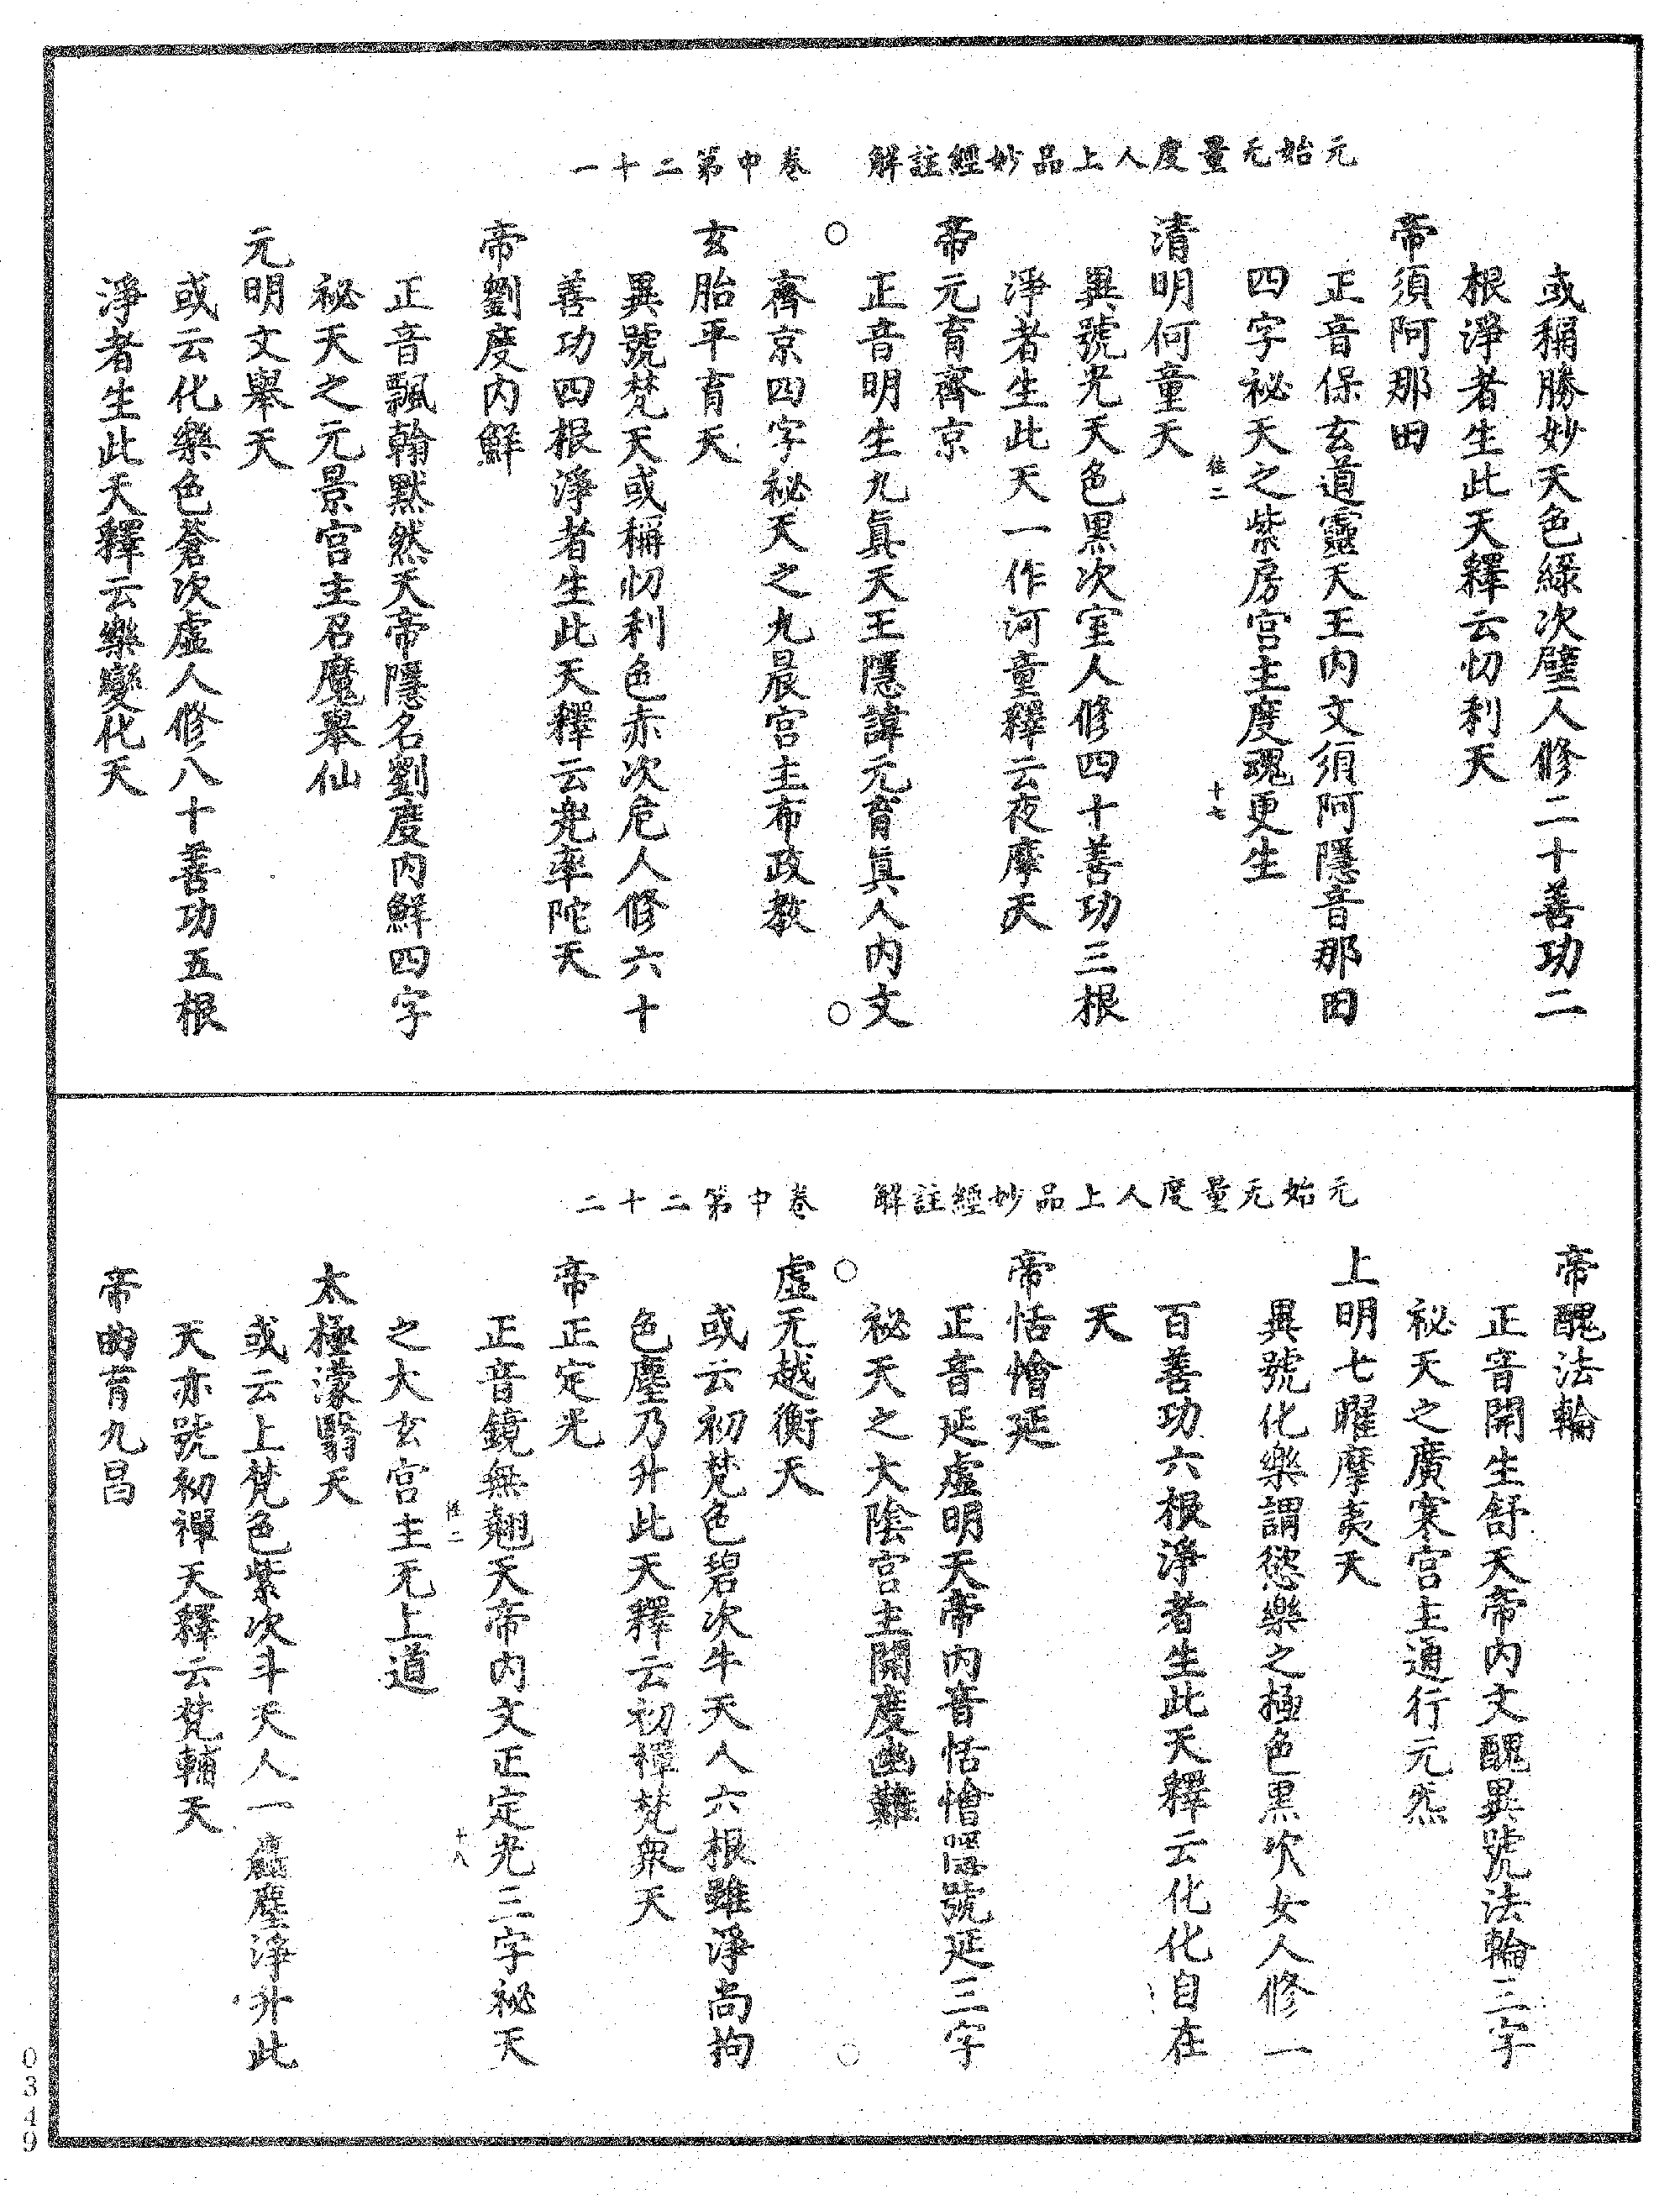 元始无量度人上品妙經註解　卷中第二十一
或稱勝妙天色綠次壁人修二十善功二
根淨者生此天釋云忉利天
帝須阿那田
正音保玄道靈天王内文須阿隱音那田
四字祕天之紫房宫主度魂更生
十七
清明何童天
異號光天色黒次室人修四十善功三根
淨者生此天一作河童釋云夜摩天
帝元育齊京
正音明生九真天王隱諱元育真人内文
齊京四字祕天之九晨宫主布政教
玄胎平育天
異號梵天或稱忉利色赤次危人修六十
善功四根淨者生此天釋云兠率陀天
帝劉度内鮮
正音飄翰黙然天帝隱名劉度内鮮四字
祕天之元景宫主召魔舉仙
元明文舉天
或云化樂色蒼次虚人修八十善功五根
淨者生此天釋云樂變化天
元始无量度人上品妙經註解　卷中第二十二
帝醜法輪
正音開生舒天帝内文醜異號法輪三字
祕天之廣寒宫主通行元炁
上明七曜摩夷天
異號化樂謂慾樂之極色黒次女人修一
百善功六根淨者生此天釋云化化自在
天
帝恬憎延
正音延虚明天帝内音恬憎隱號延三字
祕天之大陰宫主開度幽難
虚无越衡天
或云初梵色碧次牛天人六根雖淨尚拘
色塵乃升此天釋云初禪梵衆天
帝正定光
正音鏡無翘天帝内文正定光三字祕天
十八
之大玄宫主无上道
太極濛翳天
或云上梵色紫次斗天人一麤塵淨升此
天亦號初禪天釋云梵輔天
帝曲育九昌
0349